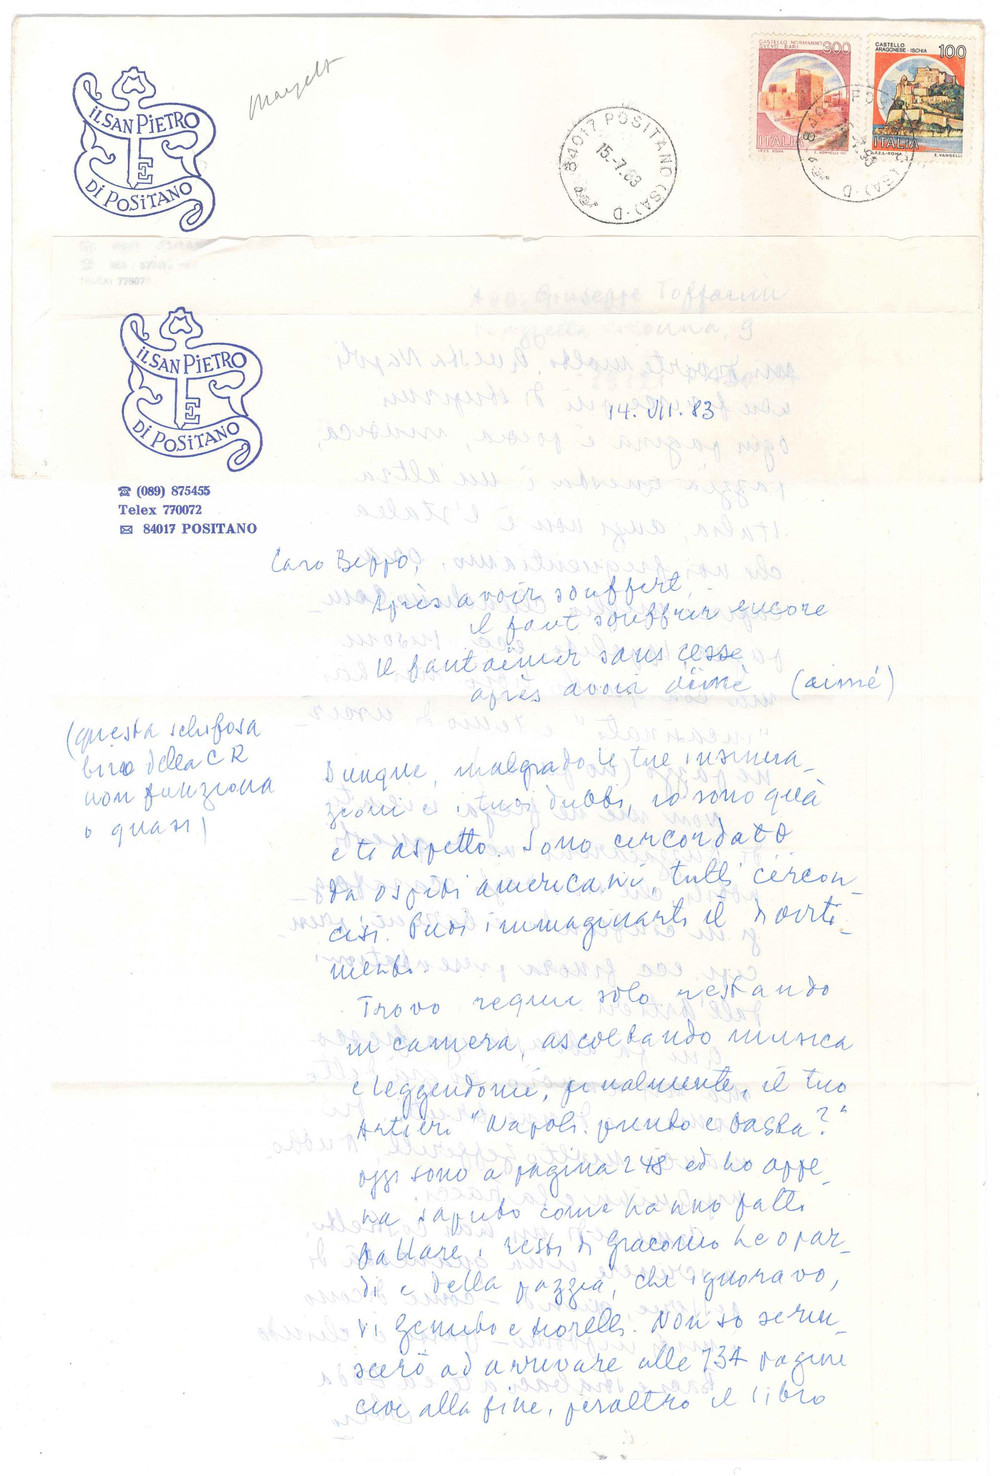 IL SAN PIETRO
DI POSITANO
84017 POSITANO (SA) · D
15-7.83
CASTELLO NORMANNO
SVEVO · BARI
300
ITALIA
CASTELLO
ARAGONESE · ISCHIA
100
ITALIA
I.P.Z.S. - ROMA
E. VANGELLI
IL SAN PIETRO
DI POSITANO
☎ (089) 875455
Telex 770072
✉ 84017 POSITANO
14. VII. 83
Caro Beppo,
Après avoir souffert,
il faut souffrir encore
il faut aimer sans cesse
après avoir aimé (aimé)
(questa schifosa
biro della CR
non funziona
o quasi)
Dunque, malgrado le tue insinua-
zioni e i tuoi dubbi, io sono quà
e ti aspetto. Sono circondato
da ospiti americani, tutti circon-
cisi. Puoi immaginarti il diverti-
mento.
Trovo requie solo restando
in camera, ascoltando musica
e leggendomi, finalmente, il tuo
Artieri "Napoli. punto e basta?"
oggi sono a pagina 248 ed ho appe-
na saputo come hanno fatti
ballare i resti di Giacomo Leopar-
di e della pazzia, che ignoravo,
di Gemito e Morelli. Non so se riu-
scerò ad arrivare alle 734 pagine
cioè alla fine, peraltro il libro